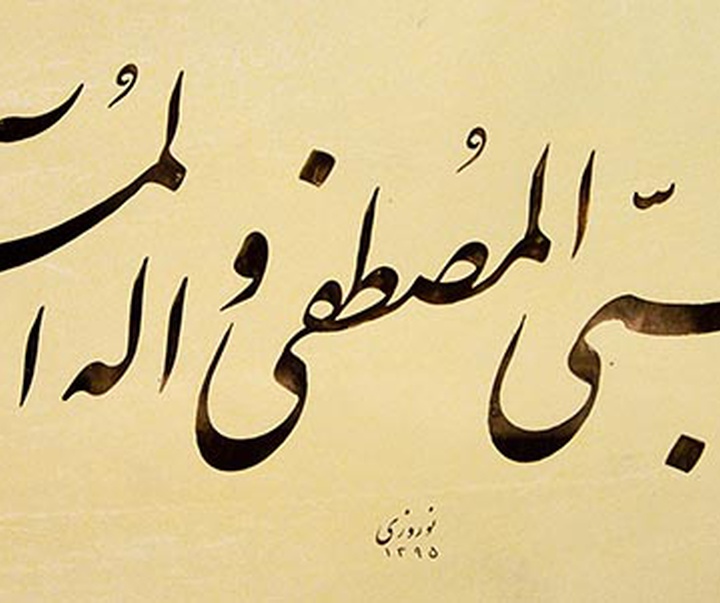 بیّ المُصطفی و اله ا لمُ
نوروزی
۱۳۹۵